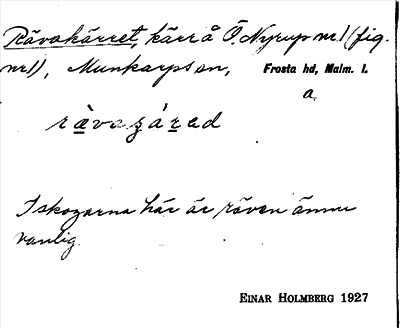 Rävakärret, kärr å Ö. Nyrup nr 1 (fig.
nr 1), Munkarps sn, Frosta hd, Malm. l.
a.
I skogarna här är räven ännu
vanlig.
EINAR HOLMBERG 1927